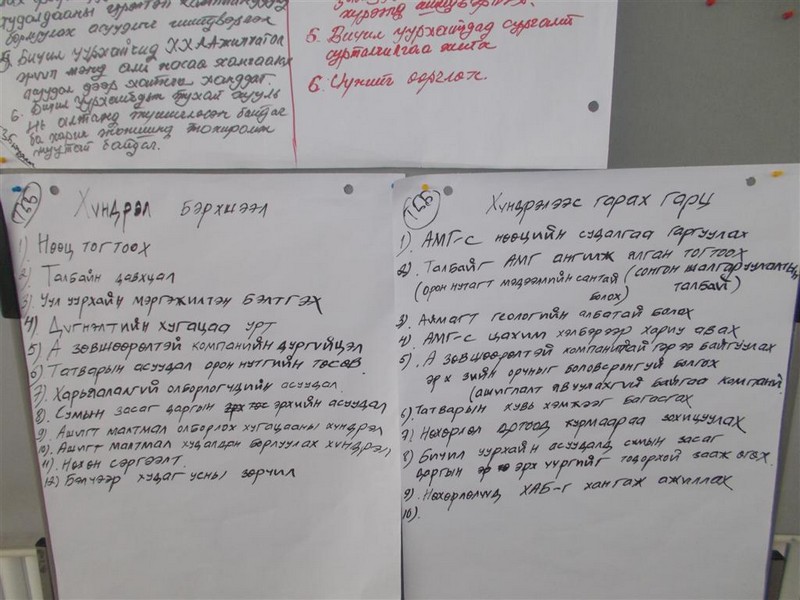 худалдааны
борлуулах асуудлыг шийдвэрлэх
5. Бичил уурхайчид ХХААжилчгоп
эрүүл мэнд
асуудал дээр хайнга ханддаг.
6. Бичил уурхайчдын тухай хууль
нь алтанд жишиглэсэн байдаг
ба харин жоншинд тохиромж
муутай байдал.
5. Бичил уурхайчдад сургалт
сурталчилгаа хийх
6. Үүнийг өөрчлөх.
ТББ
Хүндрэл бэрхшээл
1). Нөөц тогтоох
2) Талбайн давхцал
3). Уул уурхайн мэргэжилтэн бэлтгэх
4). Дүгнэлтийн хугацаа урт
5) А зөвшөөрөлтэй компанийн дүргүйцэл
6) Татварын асуудал орон нутгийн төсөв.
7). Харьяалалгүй олборлогчдийн асуудал
8). Сумын засаг даргын эрхийн асуудал
9). Ашигт малтмал олборлох хугацааны хүндрэл
10). Ашигт малтмал худалдан борлуулах хүндрэл
11). Нөхөн сэргээлт.
12) Бэлчээр худаг усны зөрчил
ТББ
Хүндрэлээс гарах гарц
1). АМГ-с нөөцийн судалгаа гаргуулах
2). Талбайг АМГ ангилж ялган тогтоох
(орон нутагт мэдээллийн сантай болох) (сонгон шалгаруулалтын талбай)
3). Аймагт геологийн албатай болох
4) АМГ-с цахим хэлбэрээр хариу авах
5). А зөвшөөрөлтэй компанитай гэрээ байгуулах
эрх зүйн орчныг боловсронгуй болгох
(ашиглалт явуулахгүй байгаа компаний
6) Татварын хувь хэмжээг багасгах
7) Нөхөрлөл дотоод журмаараа зохицуулах
8) Бичил уурхайн асуудалд сумын засаг
даргын эрх үүргийг тодорхой зааж өгөх.
9). Нөхөрлөлүүд ХАБ-г хангаж ажиллах
10).